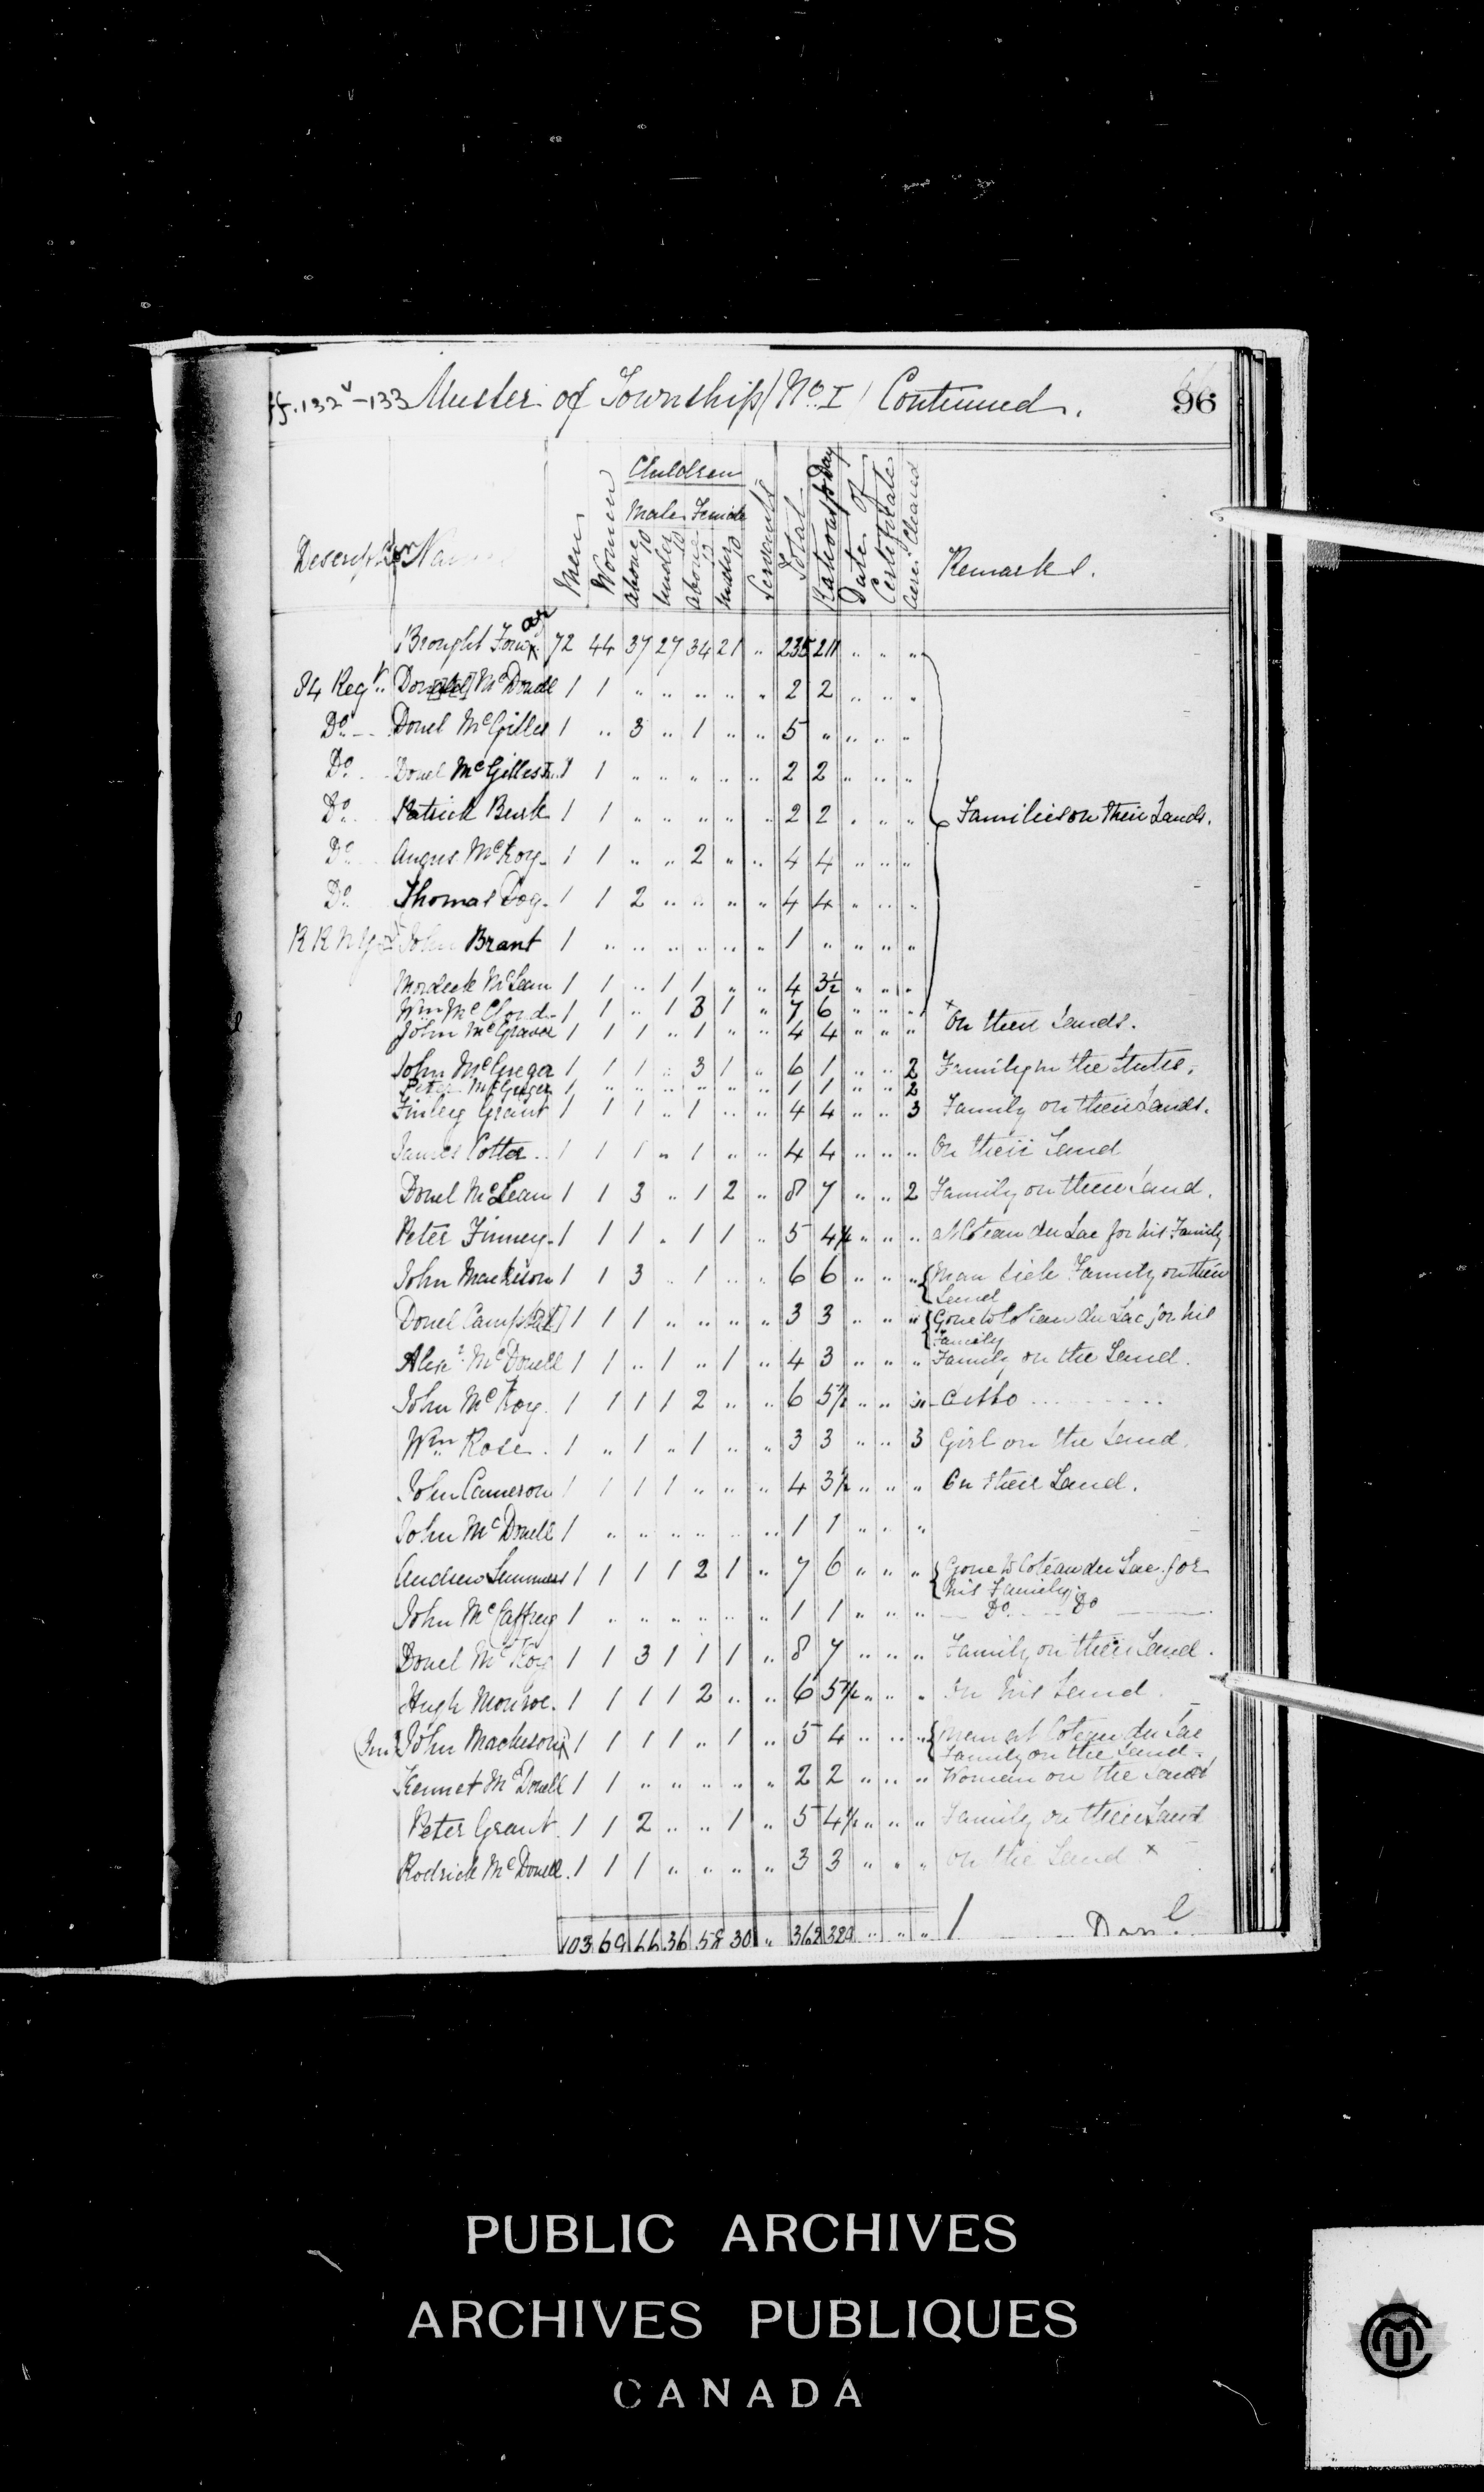 ff. 132v-133 Muster of Township (No. I) Continued. 96
Description Men Women Children Male Female above 10 under 10 above 10 under 10 Servants Total Rations pr Day Date of Certificate Acres Cleared Remarks.
Brought Forwar 72 44 37 27 34 21 .. 235 211 .. .. ..
84 Regt. McDonell 1 1 .. .. .. .. .. 2 2 .. .. ..
Do. Donel McGilles 1 .. 3 .. 1 .. .. 5 .. .. .. ..
Do. Donel McGilles 1 1 .. .. .. .. .. 2 2 .. .. ..
Do. Patrick Burk 1 1 .. .. .. .. .. 2 2 .. .. .. Families on their Lands.
Do. Angus McKoy 1 1 .. .. 2 .. .. 4 4 .. .. ..
Do. Thomas Fog 1 1 2 .. .. .. .. 4 4 .. .. ..
R R N Y John Brant 1 .. .. .. .. .. .. 1 .. .. .. ..
Mordeck McLean 1 1 .. 1 1 .. .. 4 3½ .. .. ..
Wm McCloud 1 1 .. 1 3 1 .. 7 6 .. .. ..
John McGraver 1 1 1 .. 1 .. .. 4 4 .. .. .. x On their Lands.
John McGreger 1 1 1 .. 3 1 .. 6 1 .. .. 2 Family in the States.
Peter McGreger 1 .. .. .. .. .. .. 1 1 .. .. 2
Finley Grant 1 1 1 .. 1 .. .. 4 4 .. .. 3 Family on their Lands.
James Cotter 1 1 1 .. 1 .. .. 4 4 .. .. .. On their Land
Donel McLean 1 1 3 .. 1 2 .. 8 7 .. .. 2 Family on their Land.
Peter Finney 1 1 1 .. 1 1 .. 5 4½ .. .. .. at Coteau du Lac for his Family
John Mackison 1 1 3 .. 1 .. .. 6 6 .. .. .. Man sick Family on their
Land
Donel 1 1 1 .. .. .. .. 3 3 .. .. .. Gone to Coteau du Lac for his
Family
Alexr McDonell 1 1 .. 1 .. 1 .. 4 3 .. .. .. Family on the Land.
John McKoy 1 1 1 1 2 .. .. 6 5½ .. .. .. ditto
Wm Rose 1 .. 1 .. 1 .. .. 3 3 .. .. 3 Girl on the Land.
John Cameron 1 1 1 1 .. .. .. 4 3½ .. .. .. On their Land.
John McDonell 1 .. .. .. .. .. .. 1 1 .. .. ..
Andrew Summers 1 1 1 1 2 1 .. 7 6 .. .. .. Gone to Coteau du Lac for
his Family.
John McCaffrey 1 .. .. .. .. .. .. 1 1 .. .. .. Do. Do
Donel McKoy 1 1 3 1 1 1 .. 8 7 .. .. .. Family on their Land.
Hugh Monroe 1 1 1 1 2 .. .. 6 5½ .. .. .. On his Land.
John Mackison 1 1 1 1 .. 1 .. 5 4 .. .. .. Man at Coteau du Lac
Family on the Land.
Kennet McDonell 1 1 .. .. .. .. .. 2 2 .. .. .. Woman on the Land
Peter Grant 1 1 2 .. .. 1 .. 5 4½ .. .. .. Family on their Land
Rodrick McDonell. 1 1 1 .. .. .. .. 3 3 .. .. .. On the Land x
103 69 66 36 58 30 .. 362 329 .. .. ..
PUBLIC ARCHIVES
ARCHIVES PUBLIQUES
CANADA